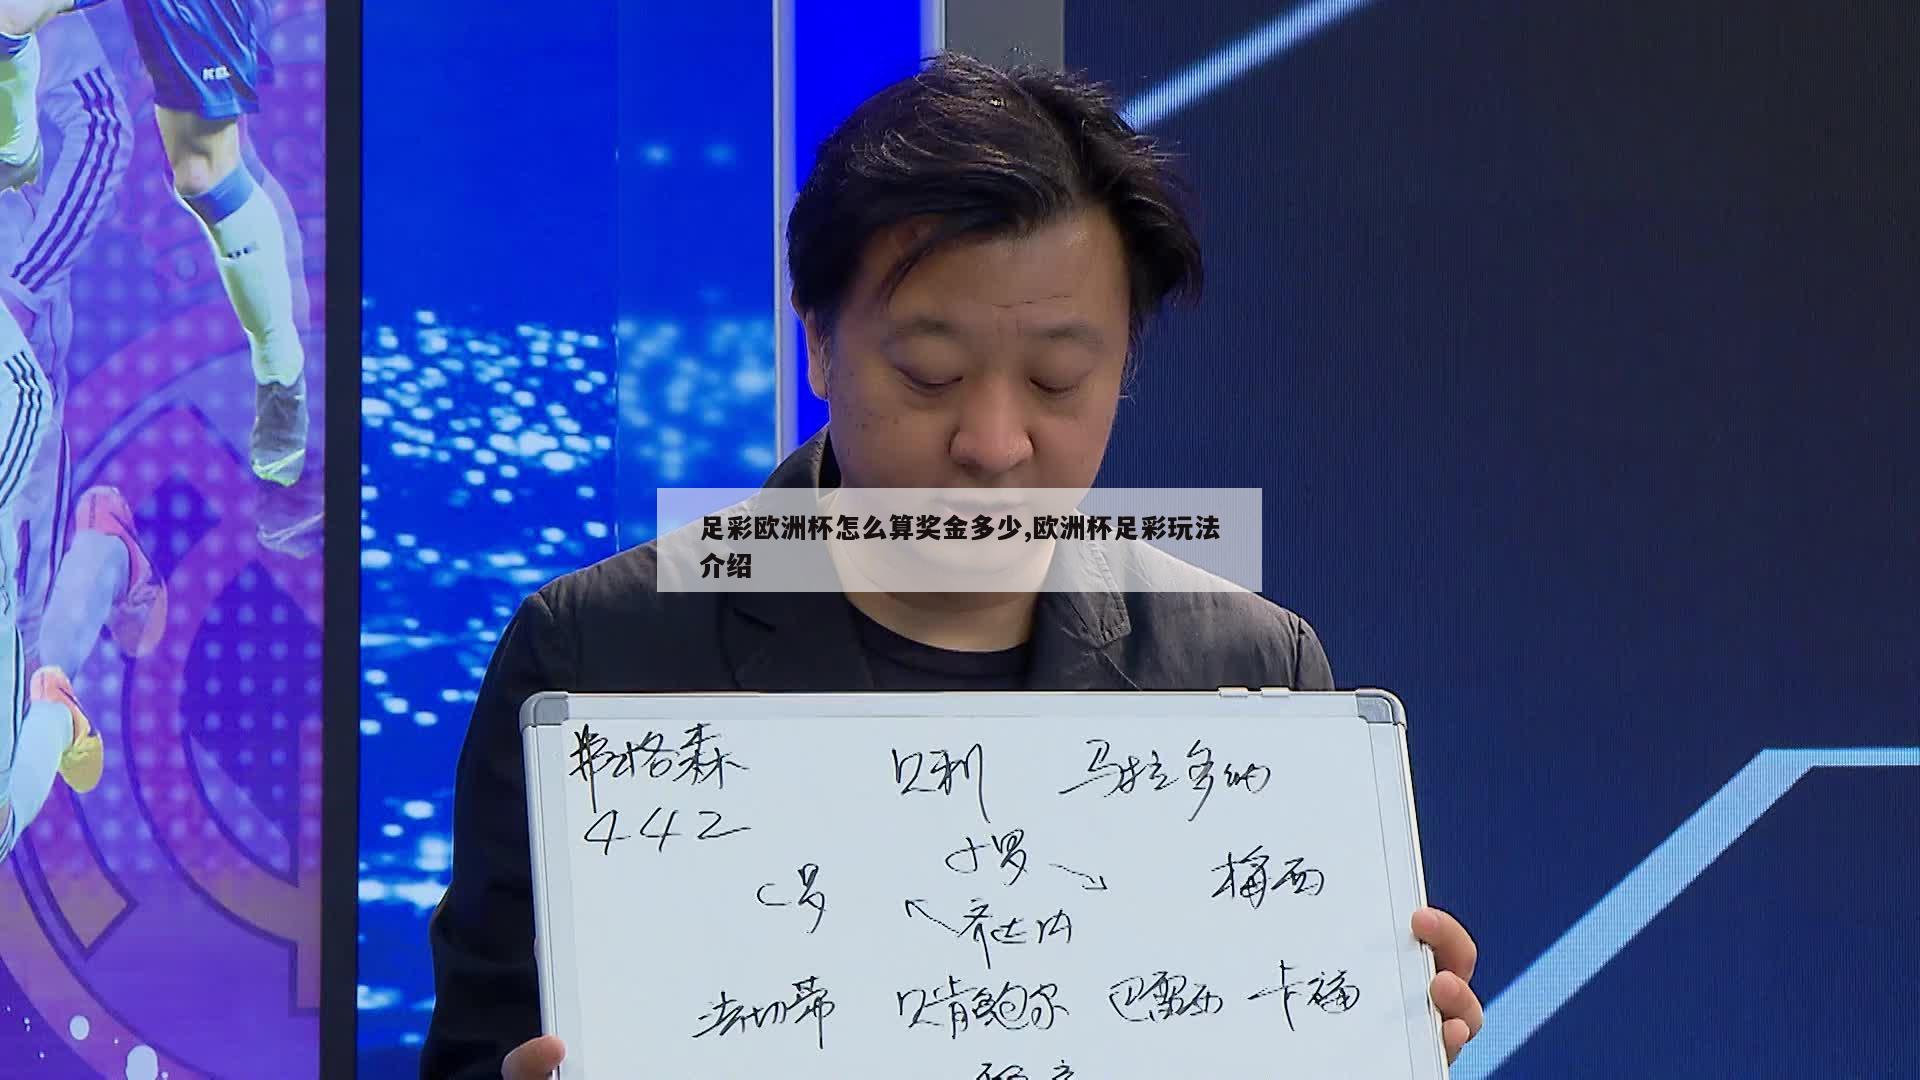 足彩欧洲杯怎么算奖金多少,欧洲杯足彩玩法
介绍
弗格森 贝利 马拉多纳
442
小罗
C罗 梅西
齐达内
法切蒂 贝肯鲍尔 巴雷西 卡福